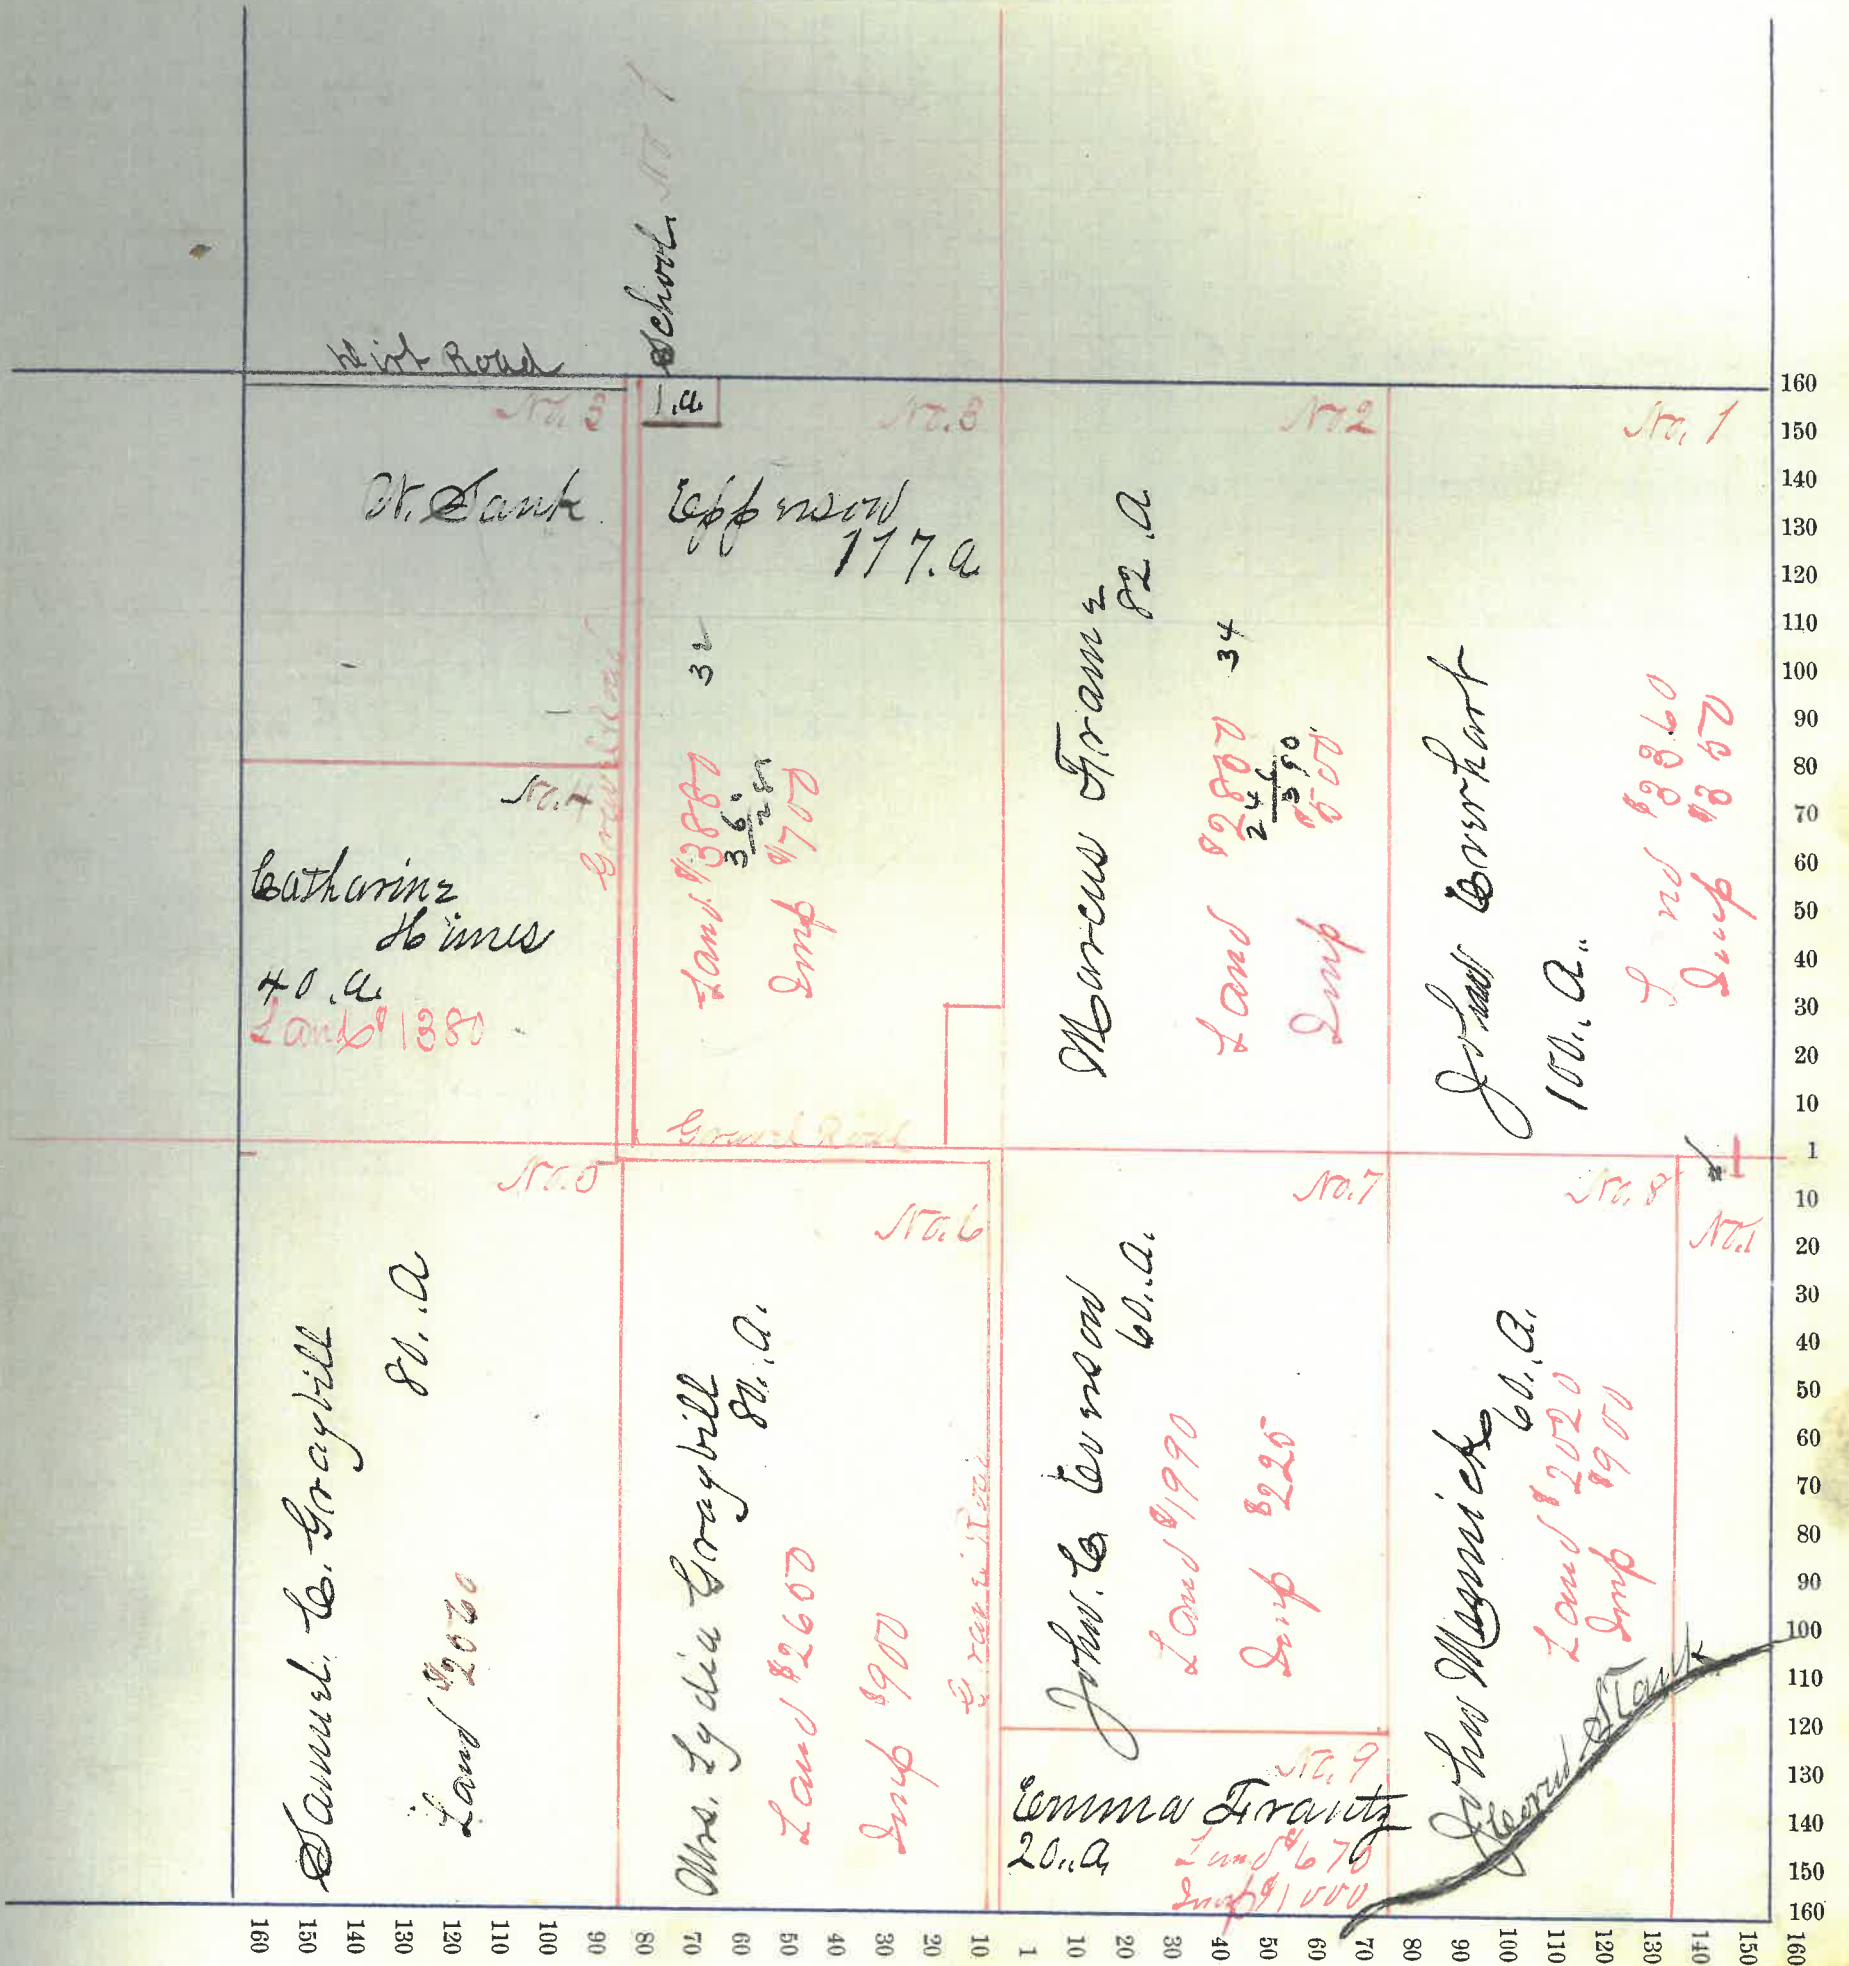 School No 1
Dirt Road
1.a.
No. 3
No. 3
No 2
No. 1
W. Sank
Epperson
117.a
32
Land $3880
36.
28
Imp $700
Marcus Franz
82.a
34
Land $2800
246
390
Imp $500
John Everhart
100..a..
Land $3360
Imp $350
No. 4
Gravel Road
Catharine
Himes
40.a.
Land $1380
Gravel Road
No. 5
Samuel. C. Graybill
80..a
Land $2060
No. 6
Mrs. Lydia Graybill
80..a.
Land $2600
Imp $900
Gravel Road
No. 7
John. C Everson
60..a.
Land $1990
Imp $225
No. 8
No. 1
John Magnicks
60..a.
Land $2020
Imp $900
No. 9
Emma Frantz
20..a.
Land $670
Imp $1000
160
150
140
130
120
110
100
90
80
70
60
50
40
30
20
10
1
10
20
30
40
50
60
70
80
90
100
110
120
130
140
150
160
160 150 140 130 120 110 100 90 80 70 60 50 40 30 20 10 1 10 20 30 40 50 60 70 80 90 100 110 120 130 140 150 160